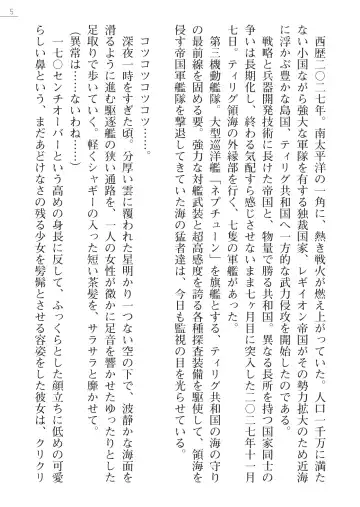 5
西歴二〇二七年。南太平洋の一角に、熱き戦火が燃え上がっていた。人口一千万に満た
ない小国ながら強大な軍隊を有する独裁国家、レギイオン帝国がその勢力拡大のため近海
に浮かぶ豊かな島国、ティリグ共和国へ一方的な武力侵攻を開始したのである。
戦略と兵器開発技術に長けた帝国と、物量で勝る共和国。異なる長所を持つ国家同士の
争いは長期化し、終わる気配すら感じさせないまま七ヶ月目に突入した二〇二七年十一月
七日。ティリグ領海の外縁部を行く、七隻の軍艦があった。
第三機動艦隊。大型巡洋艦「ネプチューン」を旗艦とする、ティリグ共和国の海の守り
の最前線を固める要。強力な対艦武装と超高感度を誇る各種探査装備を駆使して、領海を
侵す帝国軍艦隊を撃退してきていた海の猛者達は、今日も監視の目を光らせている。
コツコツコツコツ……。
深夜一時をすぎた頃。分厚い雲に覆われた星明かり一つない空の下で、波静かな海面を
滑るように進む駆逐艦の狭い通路を、一人の女性が微かに足音を響かせゆったりとした
足取りで歩いていく。軽くシャギーの入った短い茶髪を、サラサラと靡かせて。
（異常は……ないわね……）
一七〇センチオーバーという高めの身長に反して、ふっくらとした顔立ちに低めの可愛
らしい鼻という、まだあどけなさの残る少女を髣髴とさせる容姿をした彼女は、クリクリ